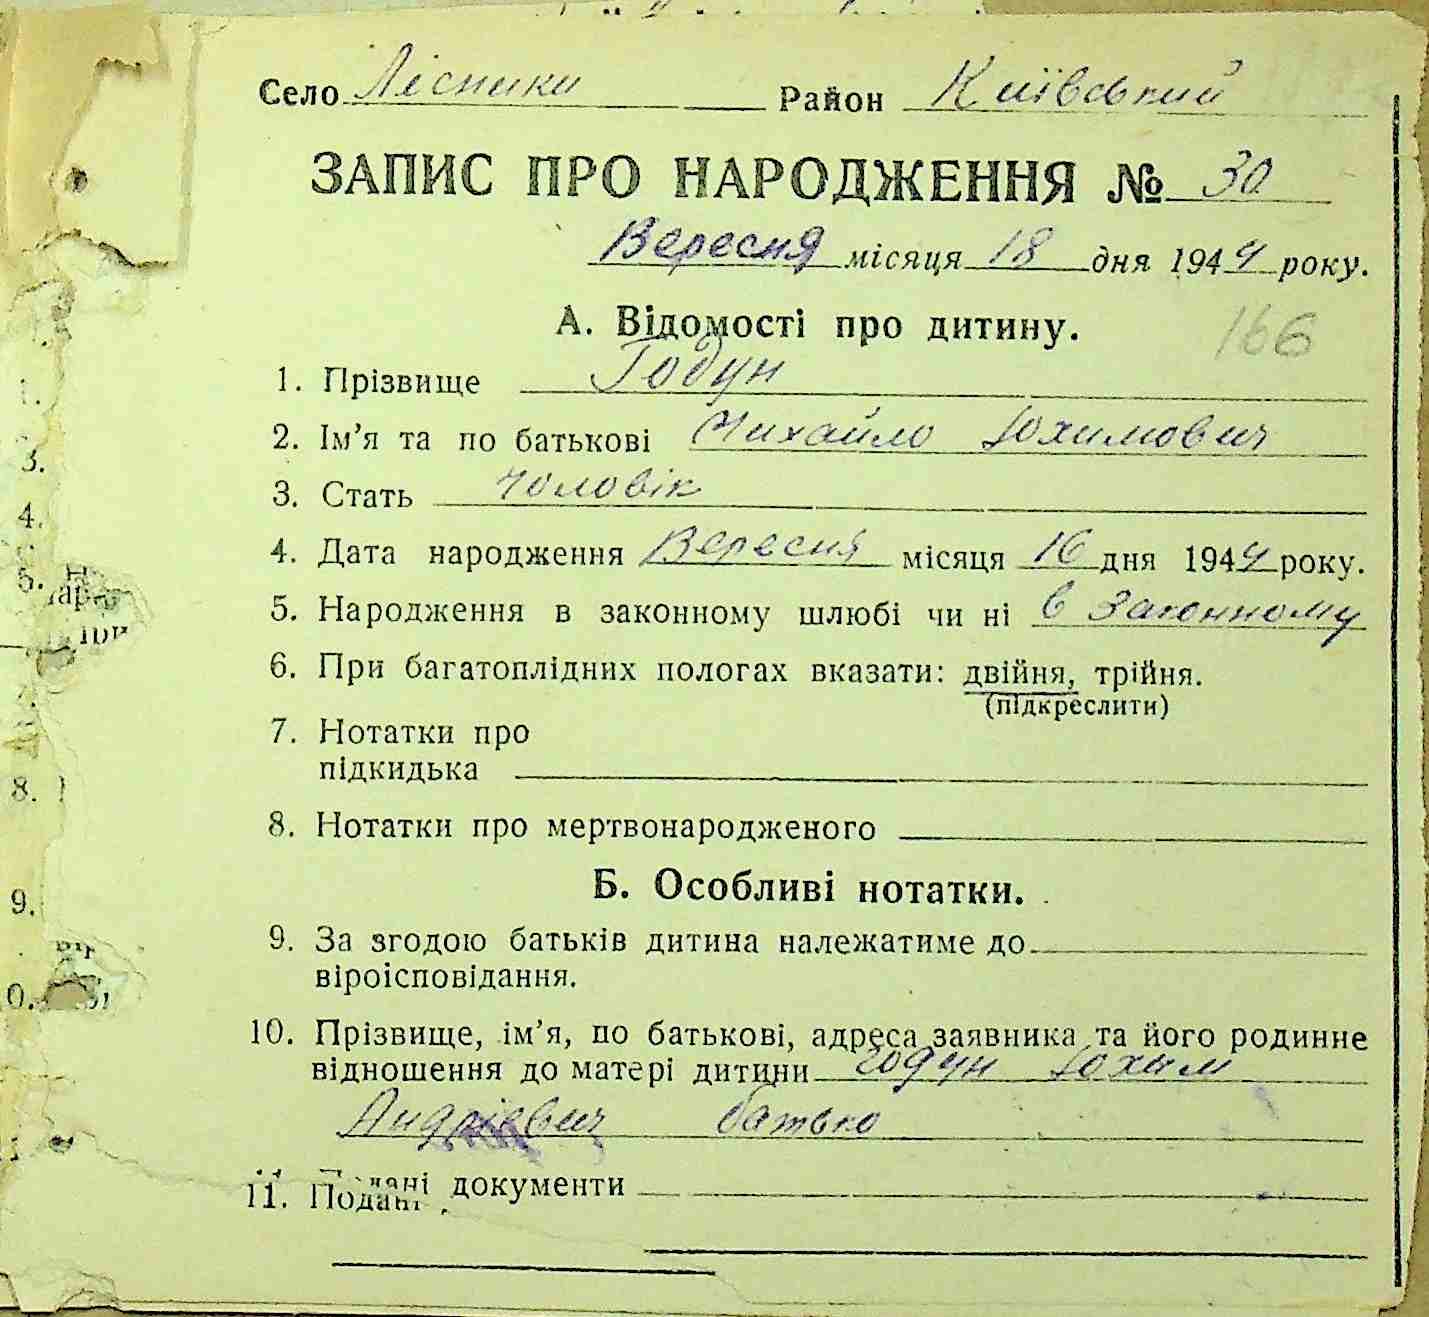 Село Лісники Район Київський
ЗАПИС ПРО НАРОДЖЕННЯ № 30
Вересня місяця 18 дня 1944 року.
А. Відомості про дитину.
166
1. Прізвище Годун
2. Ім’я та по батькові Михайло Юхимович
3. Стать чоловік
4. Дата народження Вересня місяця 16 дня 1944 року.
5. Народження в законному шлюбі чи ні в законному
6. При багатоплідних пологах вказати: двійня, трійня.
(підкреслити)
7. Нотатки про
підкидька
8. Нотатки про мертвонародженого
Б. Особливі нотатки.
9. За згодою батьків дитина належатиме до
віроісповідання.
10. Прізвище, ім’я, по батькові, адреса заявника та його родинне
відношення до матері дитини Годун Юхим
Андрієвич батько
11. Подані документи
3.
4.
5.
8.
9.